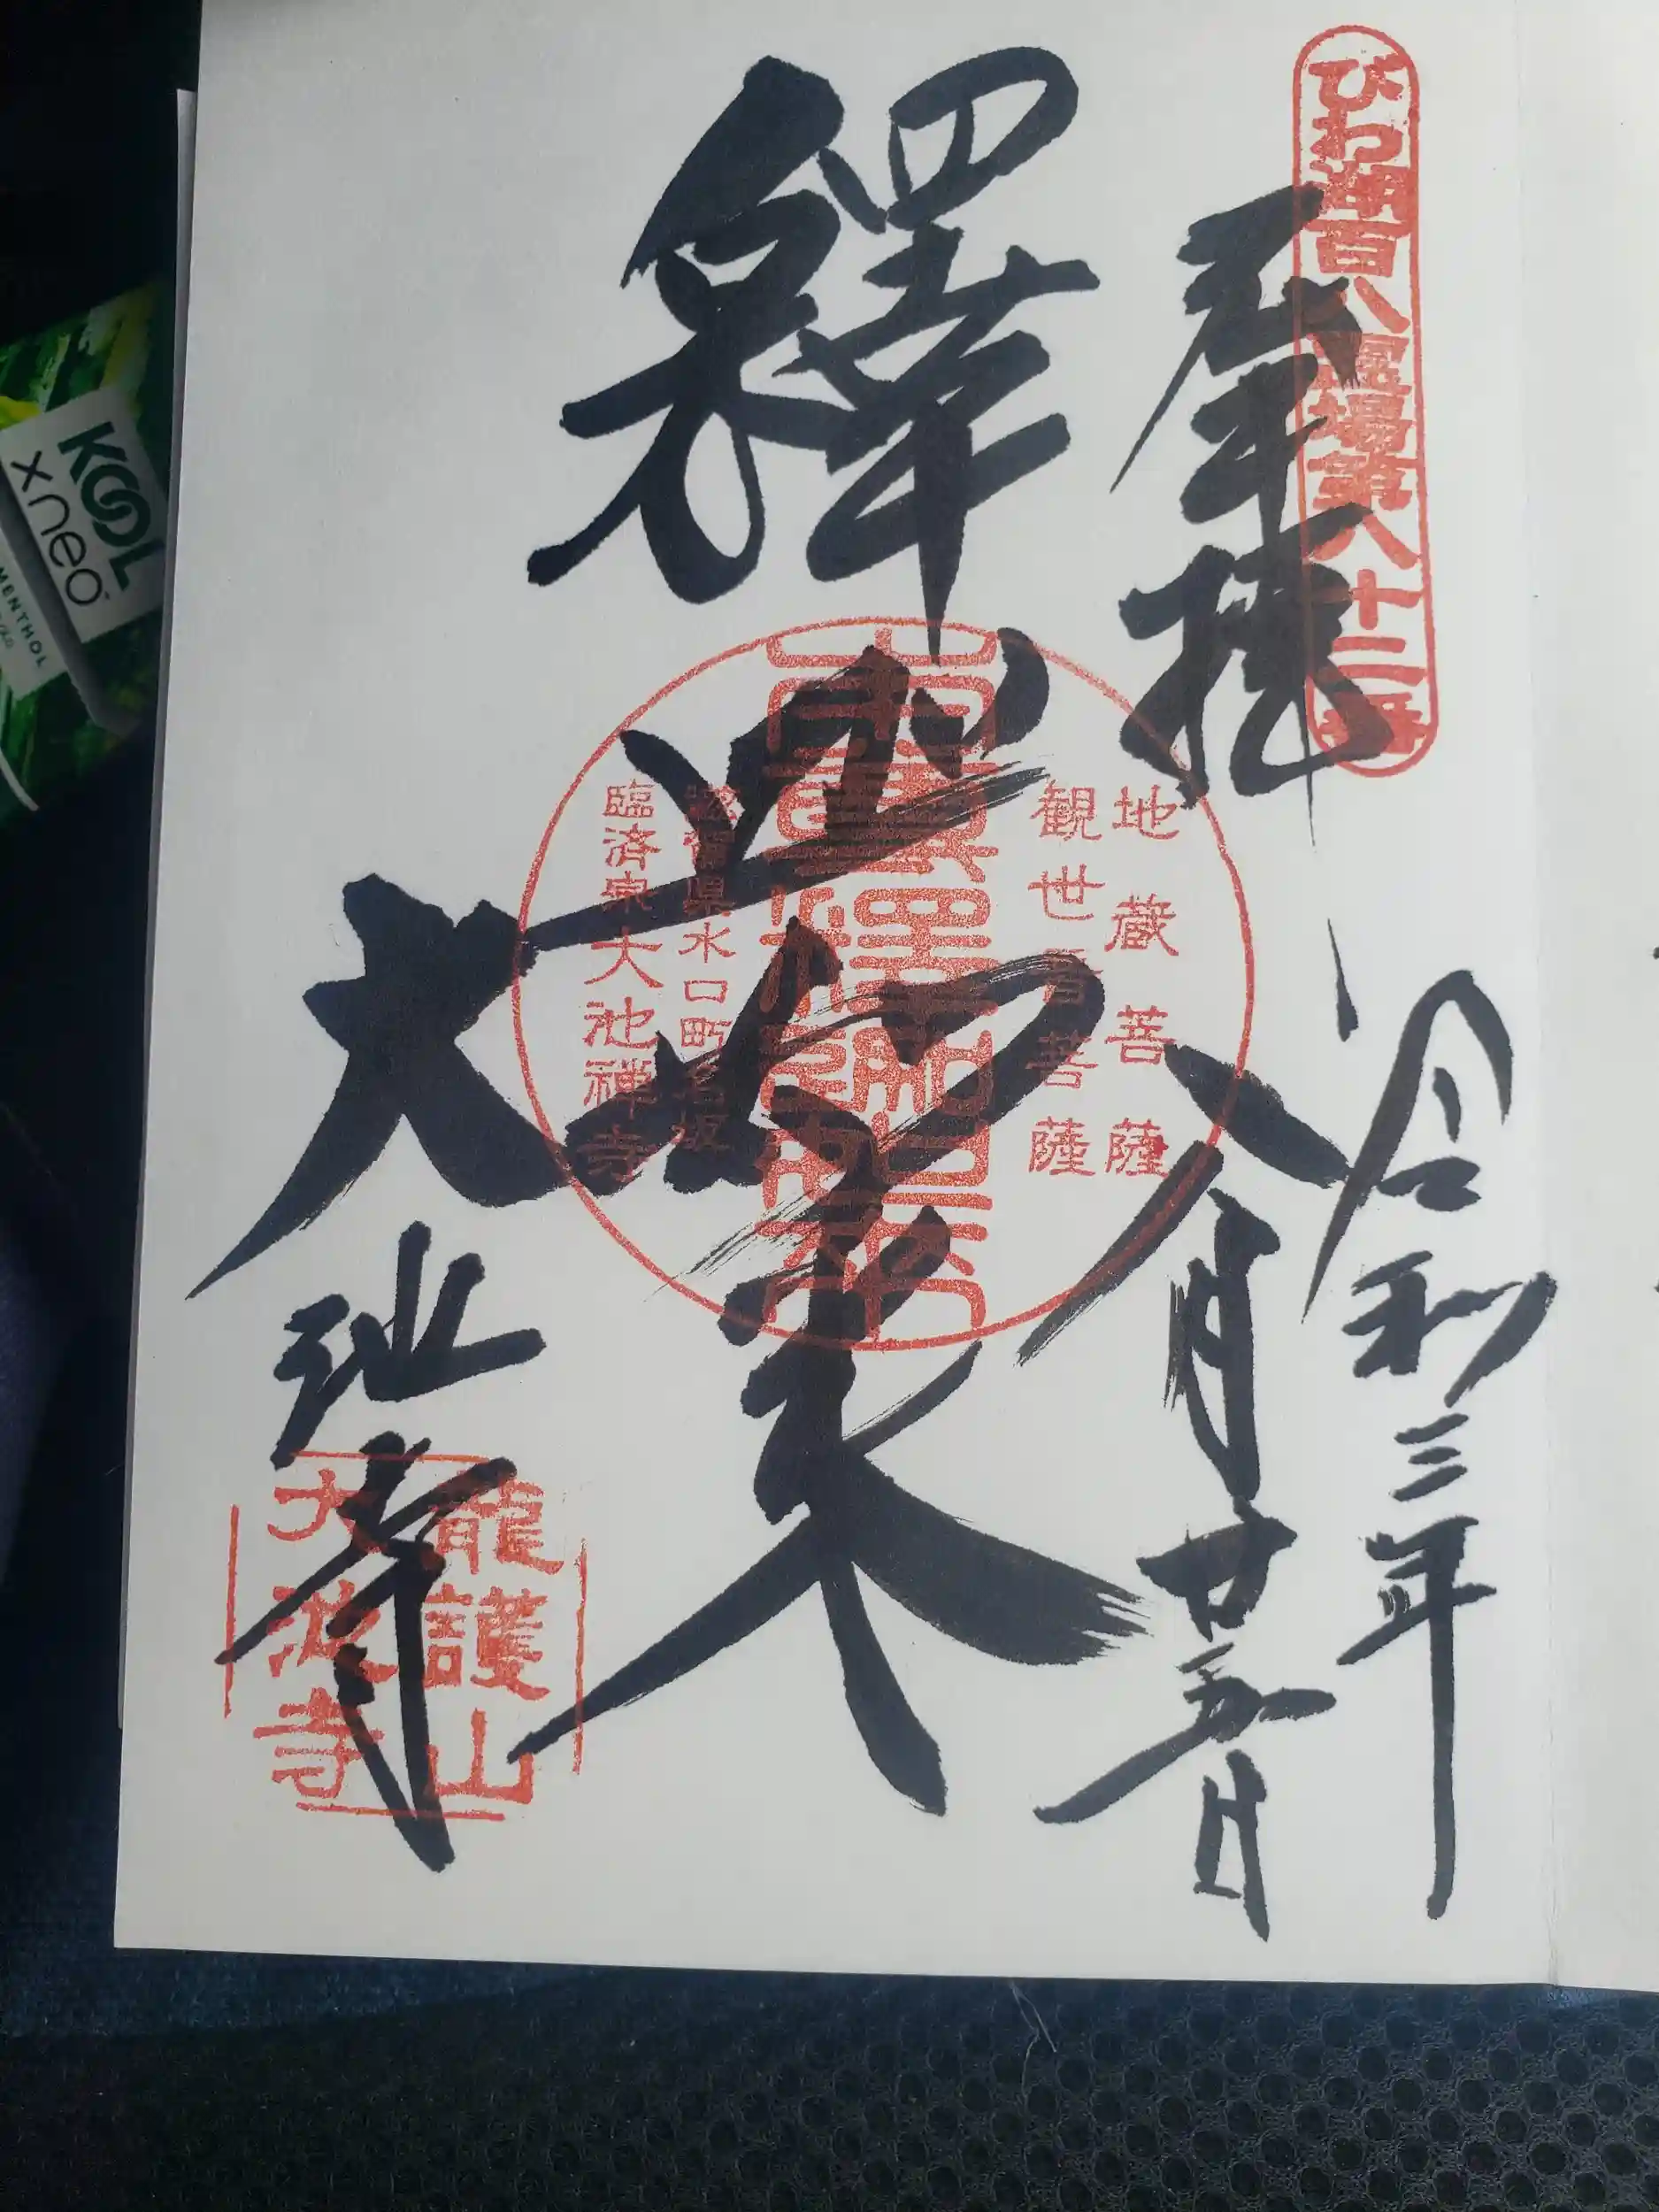 びわ湖百八霊場第八十二番
奉拝
令和三年
八月廿五日
釋迦如来
大池寺
地蔵菩薩
観世音菩薩
滋賀県水口町名坂
臨済宗大池禅寺
龍護山
大池寺
KOOL
x neo
MENTHOL